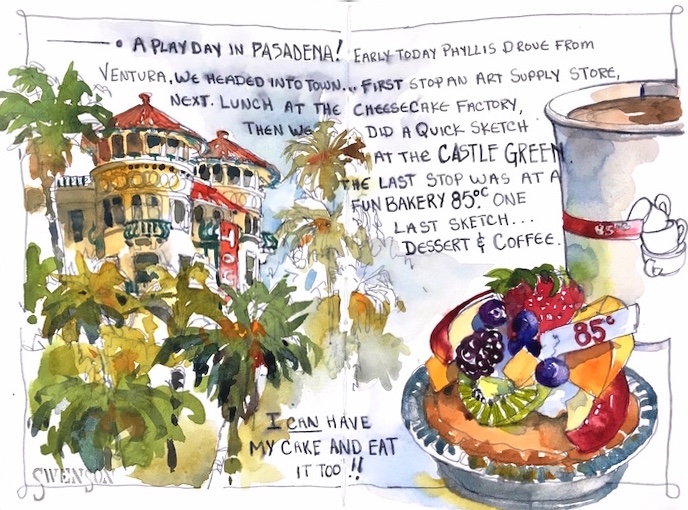 • A PLAY DAY IN PASADENA! EARLY TODAY PHYLLIS DROVE FROM
VENTURA. WE HEADED INTO TOWN... FIRST STOP AN ART SUPPLY STORE,
NEXT. LUNCH AT THE CHEESECAKE FACTORY,
THEN WE DID A QUICK SKETCH
AT THE CASTLE GREEN.
THE LAST STOP WAS AT A
FUN BAKERY 85°C ONE
LAST SKETCH...
DESSERT & COFFEE.
85°C
85°
I CAN HAVE
MY CAKE AND EAT
IT TOO!!
SWENSON